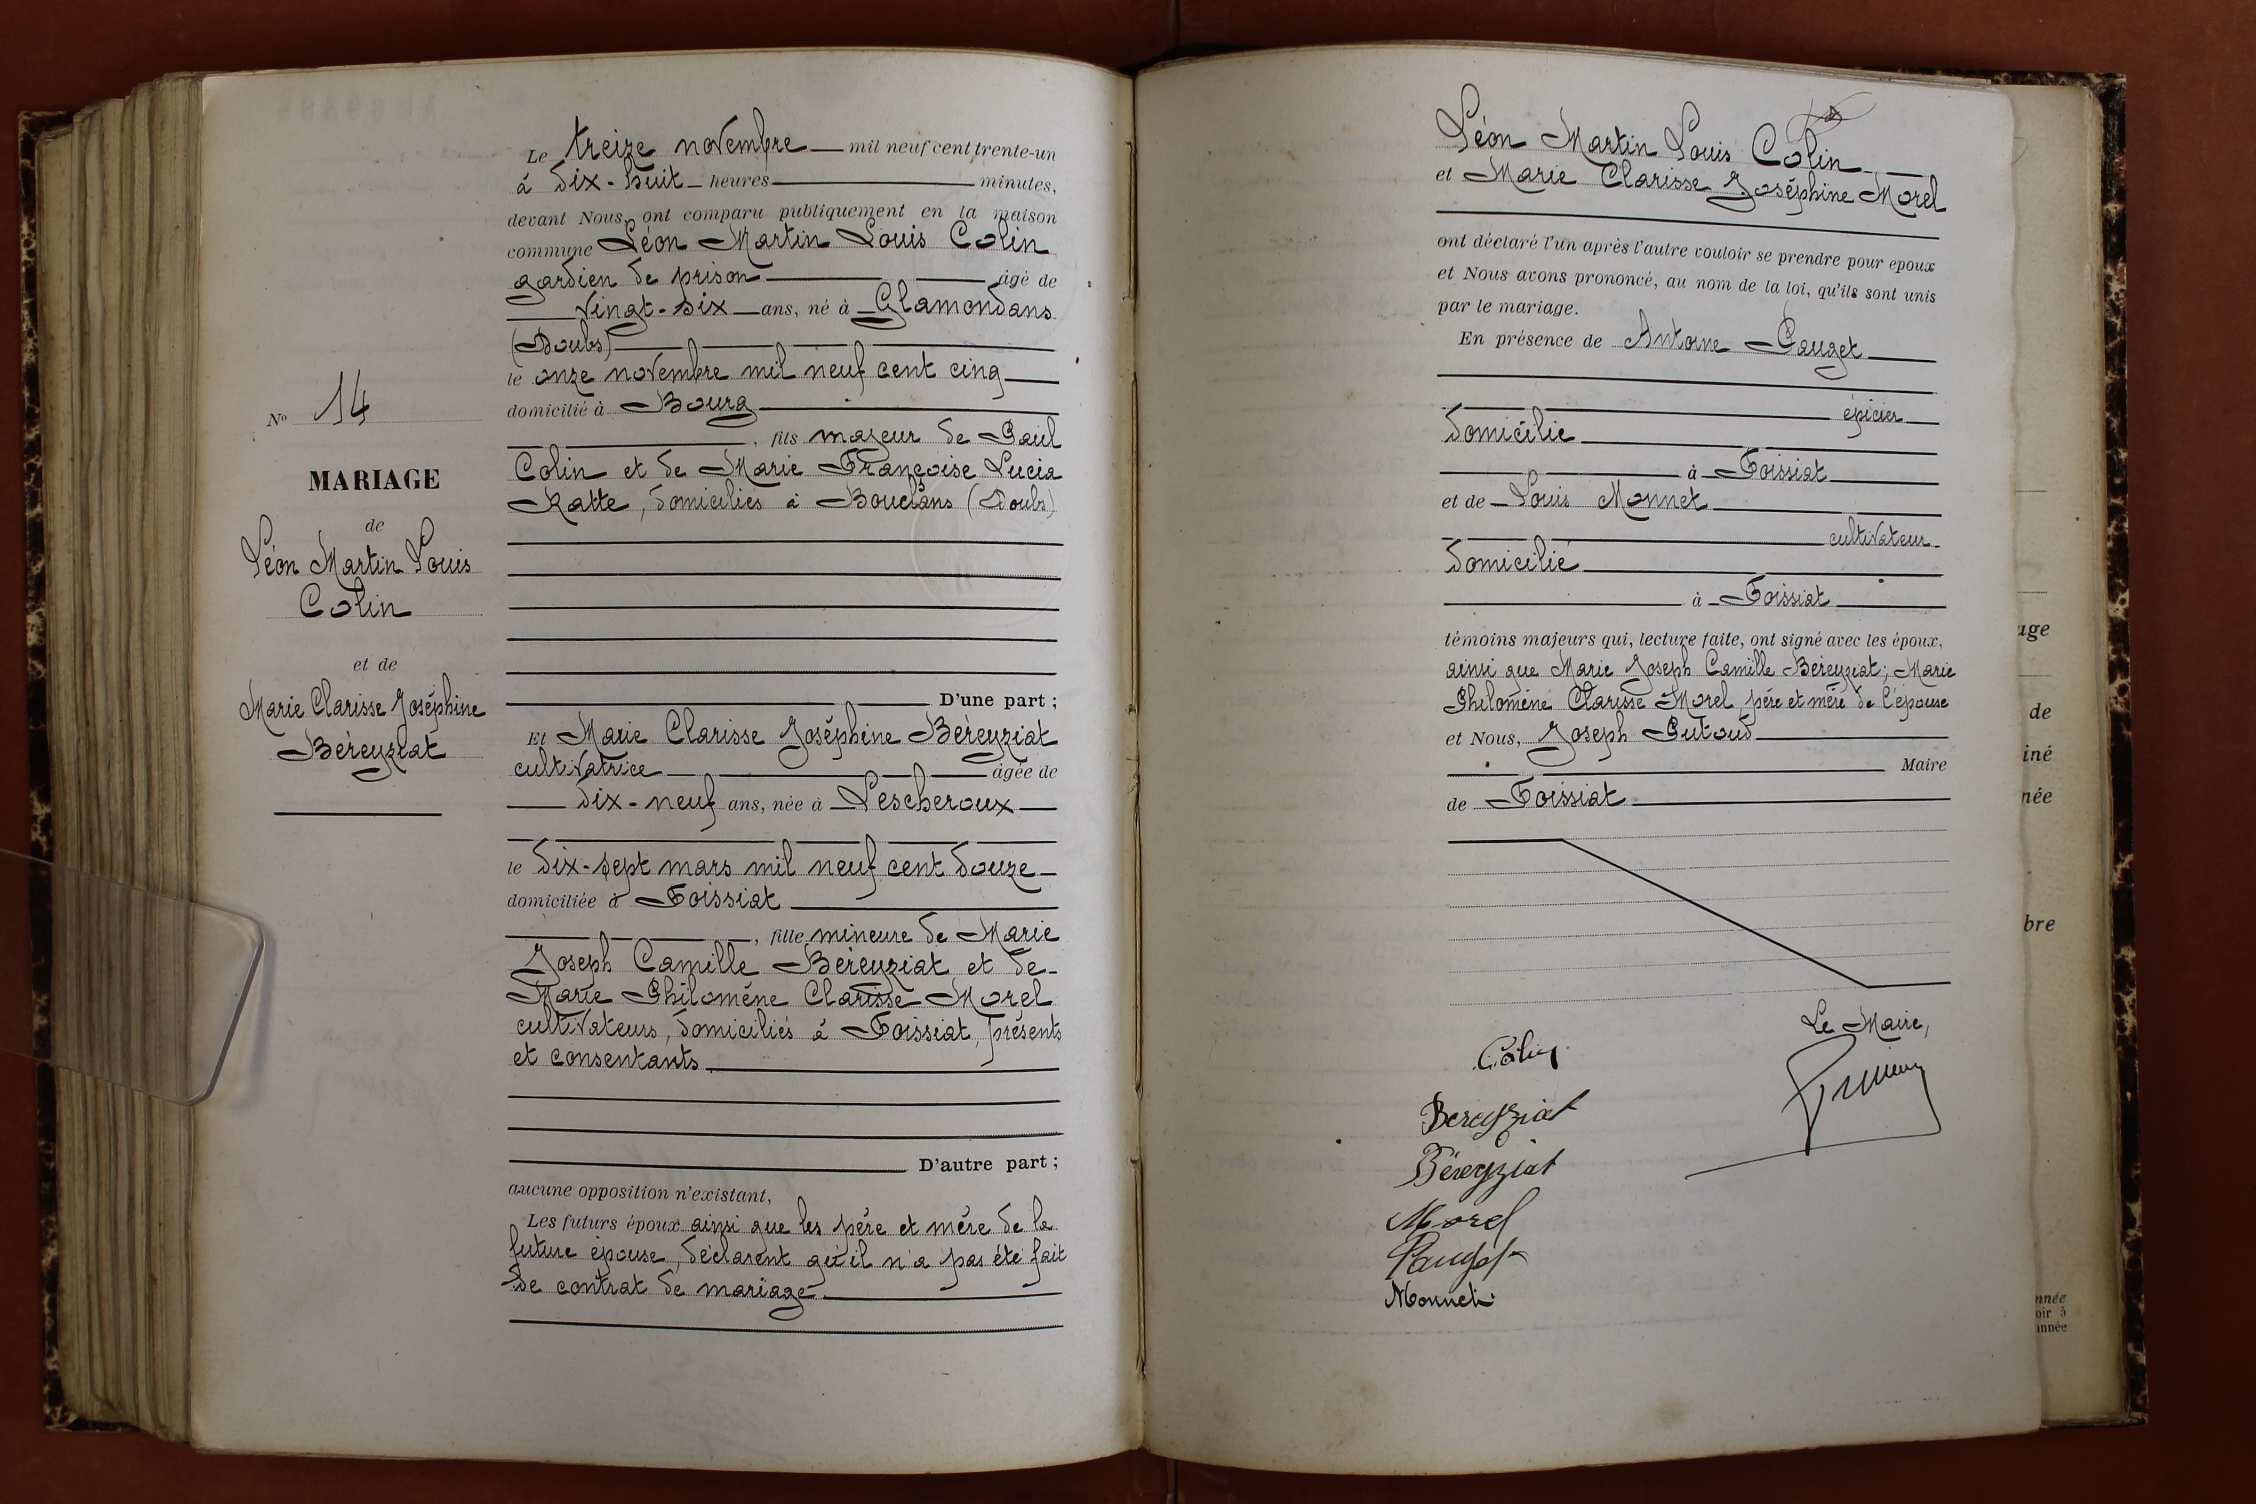 Le treize novembre mil neuf cent trente-un
à dix-huit heures minutes,
devant Nous, ont comparu publiquement en la maison
commune Léon Martin Louis Colin
gardien de prison âgé de
vingt-six ans, né à Glamondans
(Doubs)
le onze novembre mil neuf cent cinq
domicilié à Bourg
, fils majeur de Paul
Colin et de Marie Françoise Lucia
Ratte, domiciliés à Bouclans (Doubs)
No 14
MARIAGE
de
Léon Martin Louis
Colin
et de
Marie Clarisse Joséphine
Béreyziat
D'une part ;
Et Marie Clarisse Joséphine Béreyziat
cultivatrice âgée de
dix-neuf ans, née à Lescheroux
le dix-sept mars mil neuf cent douze
domiciliée à Foissiat
, fille mineure de Marie
Joseph Camille Béreyziat et de
Marie Philomène Clarisse Morel
cultivateurs, domiciliés à Foissiat, présents
et consentants
D'autre part ;
aucune opposition n'existant,
Les futurs époux ainsi que les père et mère de la
future épouse, déclarent qu'il n'a pas été fait
de contrat de mariage
Léon Martin Louis Colin
et Marie Clarisse Joséphine Morel
ont déclaré l'un après l'autre vouloir se prendre pour epoux
et Nous avons prononcé, au nom de la loi, qu'ils sont unis
par le mariage.
En présence de Antoine Pauget
épicier
domicilié
à Foissiat
et de Louis Monnet
cultivateur
domicilié
à Foissiat
témoins majeurs qui, lecture faite, ont signé avec les époux,
ainsi que Marie Joseph Camille Béreyziat; Marie
Philomène Clarisse Morel, père et mère de l'épouse
et Nous, Joseph Putoud
Maire
de Foissiat
Le Maire,
Colin
Bereyziat
Béreyziat
Morel
Pauget
Monnet
age
de
iné
née
bre
nnée
oir à
année